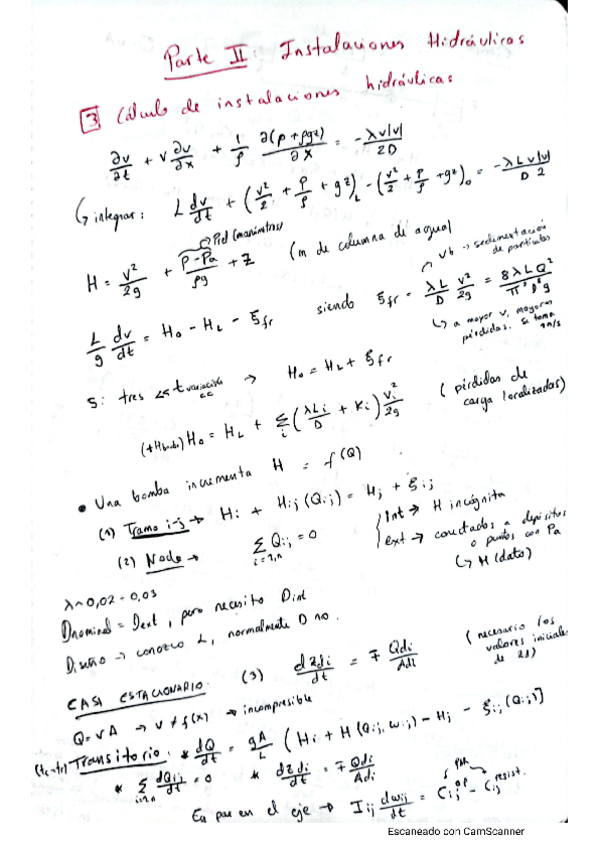 Parte II: Instalaciones Hidráulicas
3 Cálculo de instalaciones hidráulicas
∂v/∂t + v ∂v/∂x + 1/ρ ∂(p + ρgz)/∂x = -λv|v|/2D
↳ integrar: L dv/dt + (v²/2 + p/ρ + gz)_L - (v²/2 + p/ρ + gz)_0 = -λL v|v|/D 2
H = v²/2g + (P-Pa)/ρg + z (m de columna de agua)
L/g dv/dt = H₀ - H_L - ξfr siendo ξfr = λL/D v²/2g = 8λLQ²/π²D⁵g
vb → sedimentación de partículas
↳ a mayor v, mayores pérdidas. Se toma
S: tres << t variación cc → H₀ = H_L + ξfr
H₀ = H_L + Σi (λLi/D + Ki) vi²/2g (pérdidas de carga localizadas)
• Una bomba incrementa H = f(Q)
(1) Tramo i-j → Hi + Hij(Qij) = Hj + ξij
(2) Nodo → Σ Qij = 0 i=1,n
int → H incógnita
ext → conectados a depósitos o puntos con Pa
↳ H (dato)
λ ~ 0,02 - 0,03
Dnominal = Dext, pero necesito Dint
Diseño → conozco L, normalmente D no.
CASI ESTACIONARIO: (3) dzdi/dt = ∓ Qdi/Adi (necesario los valores iniciales de zd)
Q = vA → v ≠ f(x) → incompresible
Transitorio: * dQ/dt = gA/L (Hi + H(Qij, wij) - Hj - ξij(Qij))
* Σ dQij/dt = 0 i=1,n * dzdi/dt = ∓ Qdi/Adi
Ea par en el eje → Iij dwij/dt = Cij - Cij resist.
Escaneado con CamScanner